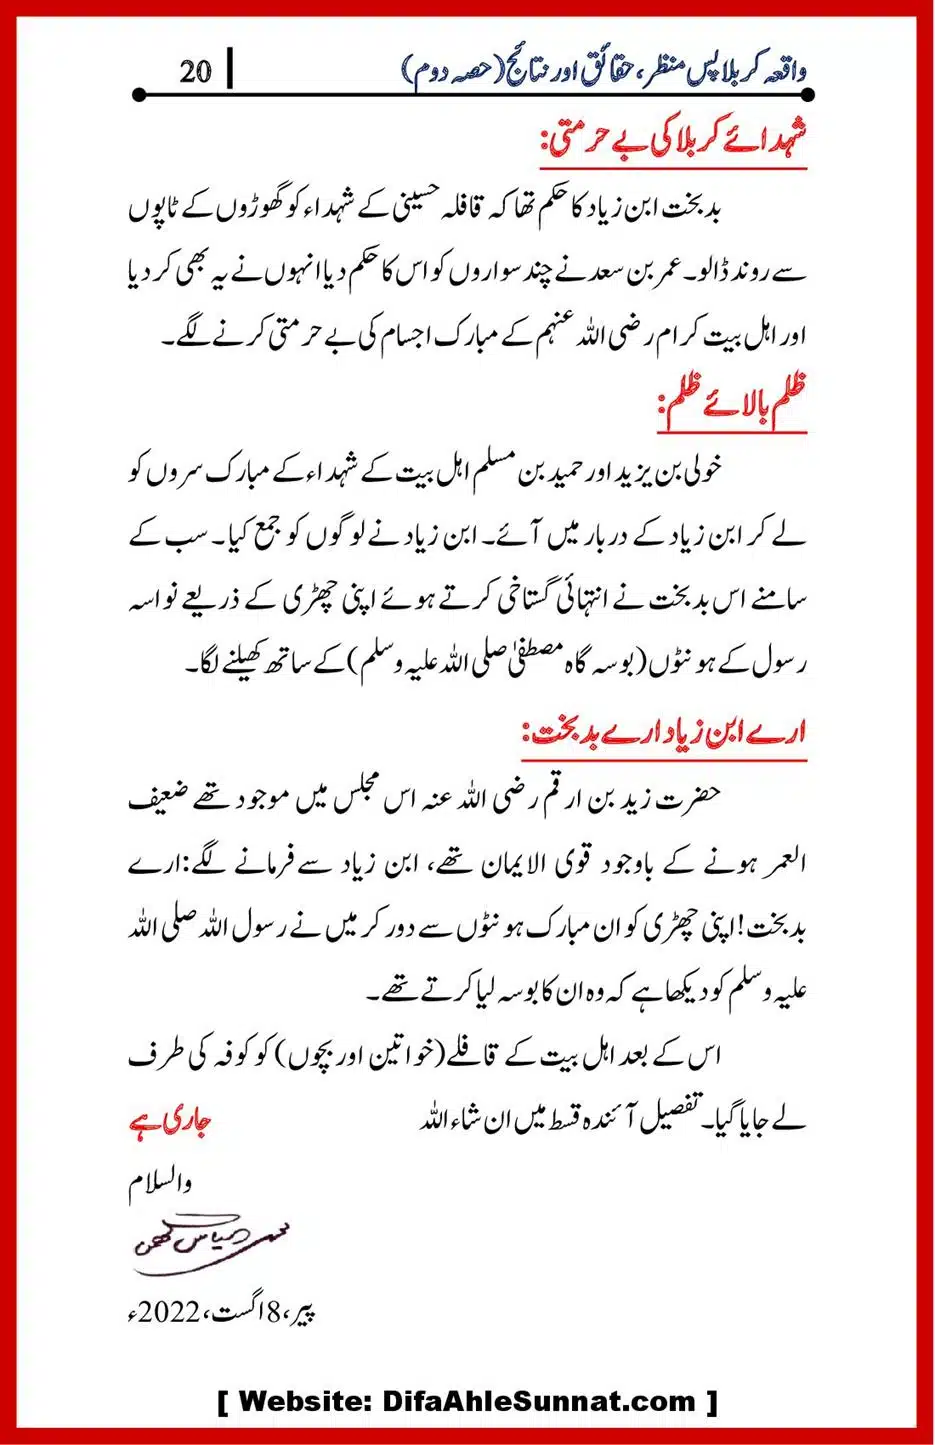 واقعہ کربلا پس منظر، حقائق اور نتائج (حصہ دوم) 20
شہدائے کربلا کی بے حرمتی:
بدبخت ابن زیاد کا حکم تھا کہ قافلہ حسینی کے شہداء کو گھوڑوں کے ٹاپوں
سے روند ڈالو۔ عمر بن سعد نے چند سواروں کو اس کا حکم دیا انہوں نے یہ بھی کر دیا
اور اہل بیت کرام رضی اللہ عنہم کے مبارک اجسام کی بے حرمتی کرنے لگے۔
ظلم بالائے ظلم:
خولی بن یزید اور حمید بن مسلم اہل بیت کے شہداء کے مبارک سروں کو
لے کر ابن زیاد کے دربار میں آئے۔ ابن زیاد نے لوگوں کو جمع کیا۔ سب کے
سامنے اس بدبخت نے انتہائی گستاخی کرتے ہوئے اپنی چھڑی کے ذریعے نواسہ
رسول کے ہونٹوں (بوسہ گاہ مصطفیٰ صلی اللہ علیہ وسلم) کے ساتھ کھیلنے لگا۔
ارے ابن زیاد ارے بدبخت:
حضرت زید بن ارقم رضی اللہ عنہ اس مجلس میں موجود تھے ضعیف
العمر ہونے کے باوجود قوی الایمان تھے، ابن زیاد سے فرمانے لگے: ارے
بدبخت! اپنی چھڑی کو ان مبارک ہونٹوں سے دور کر میں نے رسول اللہ صلی اللہ
علیہ وسلم کو دیکھا ہے کہ وہ ان کا بوسہ لیا کرتے تھے۔
اس کے بعد اہل بیت کے قافلے (خواتین اور بچوں) کو کوفہ کی طرف
لے جایا گیا۔ تفصیل آئندہ قسط میں ان شاء اللہ جاری ہے
والسلام
پیر، 8 اگست، 2022ء
[ Website: DifaAhleSunnat.com ]